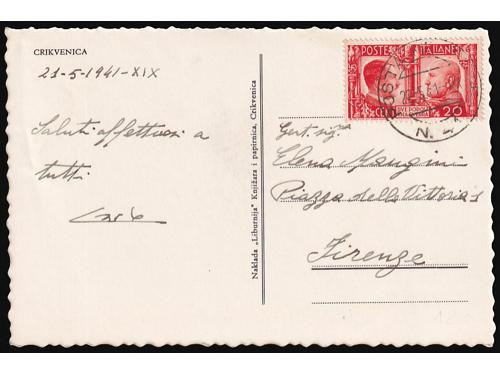 CRIKVENICA
21-5-1941-XIX
Saluti affettuosi a
tutti
Naklada „Liburnija" Knjižara i papirnica, Crikvenica
POSTE ITALIANE
20
Gent. sig.ra
Elena Mangini
Piazza della Vittoria
Firenze